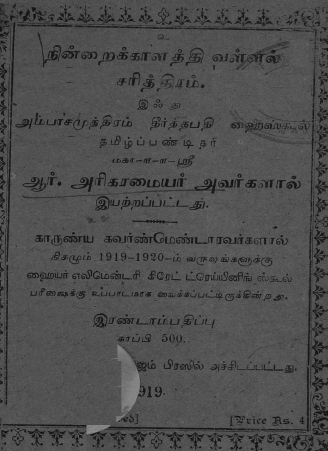 உ
நின்றைக்காளத்தி வள்ளல்
சரித்திரம்.
இஃது
அம்பாசமுத்திரம் தீர்த்தபதி ஹைஸ்கூல்
தமிழ்ப்பண்டிதர்
மகா-ள-ள-ஸ்ரீ
ஆர். அரிகரமையர் அவர்களால்
இயற்றப்பட்டது.
காருண்ய கவர்ண்மெண்டாரவர்களால்
நிகழும் 1919-1920-ம் வருஷங்களுக்கு
ஹையர் எலிமெண்டரி கிரேட் ட்ரெய்னிங் ஸ்கூல்
பரிக்ஷைக்கு உப்பாடமாக வைக்கப்பட்டிருக்கின்றது.
இரண்டாம்பதிப்பு
காப்பி 500.
பிரஸில் அச்சிடப்பட்டது.
919.
[Price As. 4